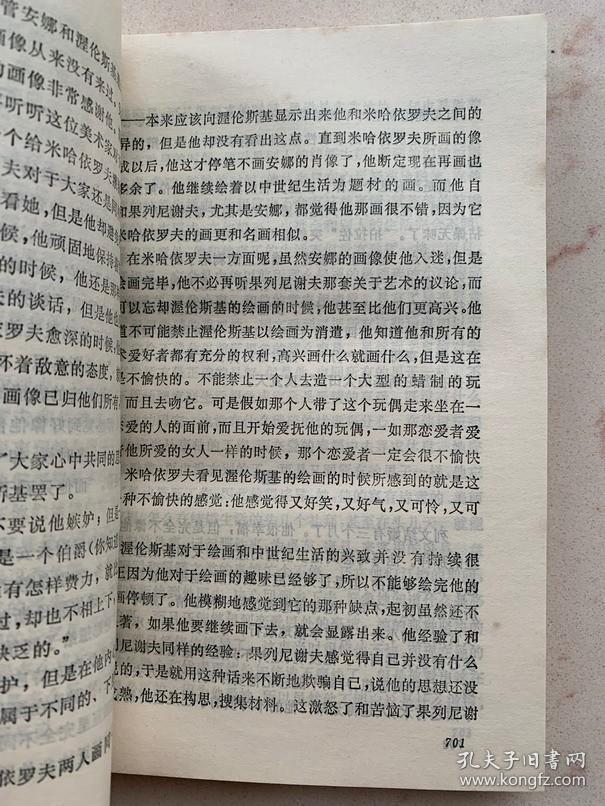 管安娜和渥伦斯基
画像从来没有来过
的画像非常感谢他
听听这位美术家
个给米哈依罗夫
夫对于大家还是
看她，但是他却
候，他顽固地保持
的时候，他还是那
夫的谈话，但是他
罗夫愈深的时候，
怀着敌意的态度，
画像已归他们所有
了大家心中共同的思
斯基罢了。
不要说他嫉妒，但是
是一个伯爵（你知道
没有怎样费力，就
过，却也不相上下，
缺乏的。”
护，但是在他内
属于不同的、下
依罗夫两人画同
——本来应该向渥伦斯基显示出来他和米哈依罗夫之间的
异的，但是他却没有看出这点。直到米哈依罗夫所画的像
成以后，他这才停笔不画安娜的肖像了，他断定现在再画也
多余了。他继续绘着以中世纪生活为题材的画。而他自
和果列尼谢夫，尤其是安娜，都觉得他那画很不错，因为它
米哈依罗夫的画更和名画相似。
在米哈依罗夫一方面呢，虽然安娜的画像使他入迷，但是
会画完毕，他不必再听果列尼谢夫那套关于艺术的议论，而
可以忘却渥伦斯基的绘画的时候，他甚至比他们更高兴。他
道不可能禁止渥伦斯基以绘画为消遣，他知道他和所有的
术爱好者都有充分的权利，高兴画什么就画什么，但是这在
是不愉快的。不能禁止一个人去造一个大型的蜡制的玩
，而且去吻它。可是假如那个人带了这个玩偶走来坐在一
恋爱的人的面前，而且开始爱抚他的玩偶，一如那恋爱者爱
着他所爱的女人一样的时候，那个恋爱者一定会很不愉快
米哈依罗夫看见渥伦斯基的绘画的时候所感到的就是这
种不愉快的感觉：他感觉得又好笑，又好气，又可怜，又可
渥伦斯基对于绘画和中世纪生活的兴致并没有持续很
正因为他对于绘画的趣味已经够了，所以不能够绘完他的
画停顿了。他模糊地感觉到它的那种缺点，起初虽然还不
著，如果他要继续画下去，就会显露出来。他经验了和
列尼谢夫同样的经验：果列尼谢夫感觉得自己并没有什么
说的，于是就用这种话来不断地欺骗自己，说他的思想还没
成熟，他还在构思，搜集材料。这激怒了和苦恼了果列尼谢
701
孔夫子旧书网
www.kongfz.com